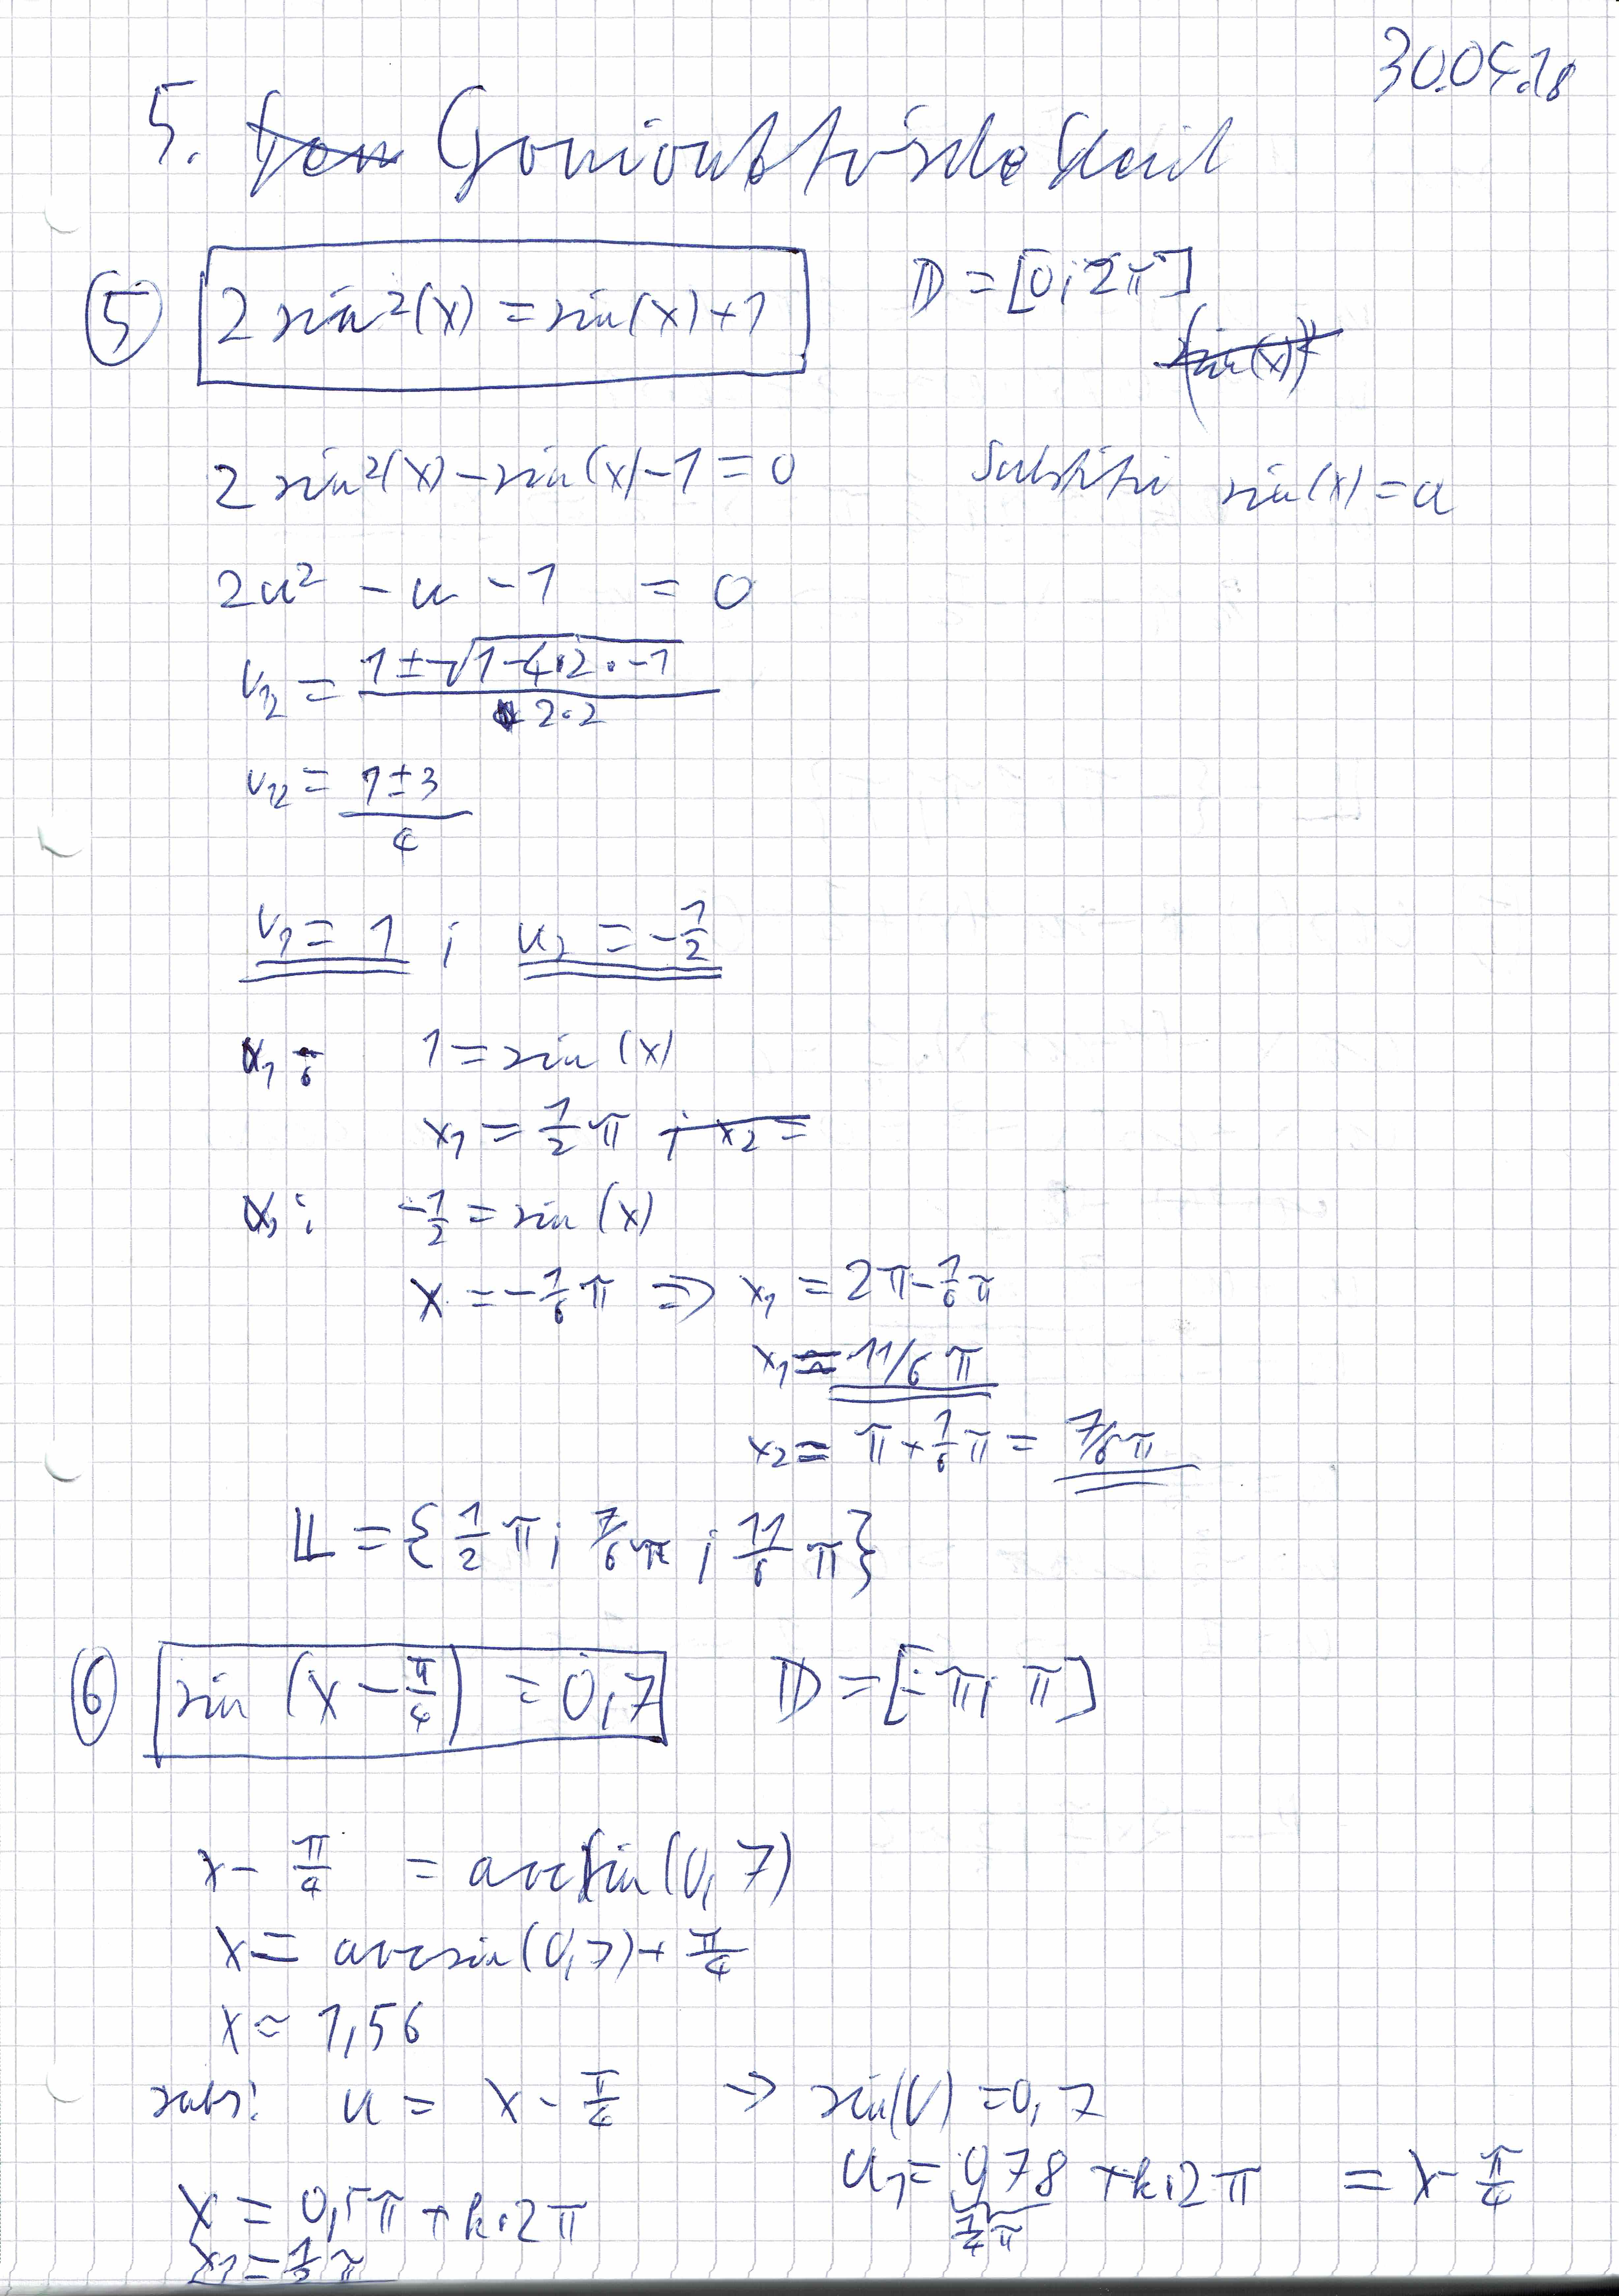 30.04.18
5. Goniometrische Gleich
5 2 sin²(x) = sin(x)+1 𝔻 = [0; 2π]
(sin(x))²
2 sin²(x) - sin(x) - 1 = 0 Substitu sin(x) = u
2u² - u - 1 = 0
u₁₂ = (1 ± √(1-4·2·-1)) / (2·2)
u₁₂ = (1±3)/4
u₁ = 1 ; u₂ = -1/2
u₁: 1 = sin (x)
x₁ = 1/2 π ; x₂ =
u₂: -1/2 = sin (x)
x = -1/6 π ⇒ x₁ = 2π - 1/6 π
x₁ = 11/6 π
x₂ = π + 1/6 π = 7/6 π
𝕃 = {1/2 π ; 7/6 π ; 11/6 π}
6 sin (x - π/4) = 0,7 𝔻 = [-π; π]
x - π/4 = arcsin(0,7)
x = arcsin(0,7) + π/4
x ≈ 1,56
subs: u = x - π/4 ⇒ sin(u) = 0,7
u₁ = 0,78 + k·2π = x - π/4
1/4 π
x = 0,5π + k·2π
x₁ = 1/2 π